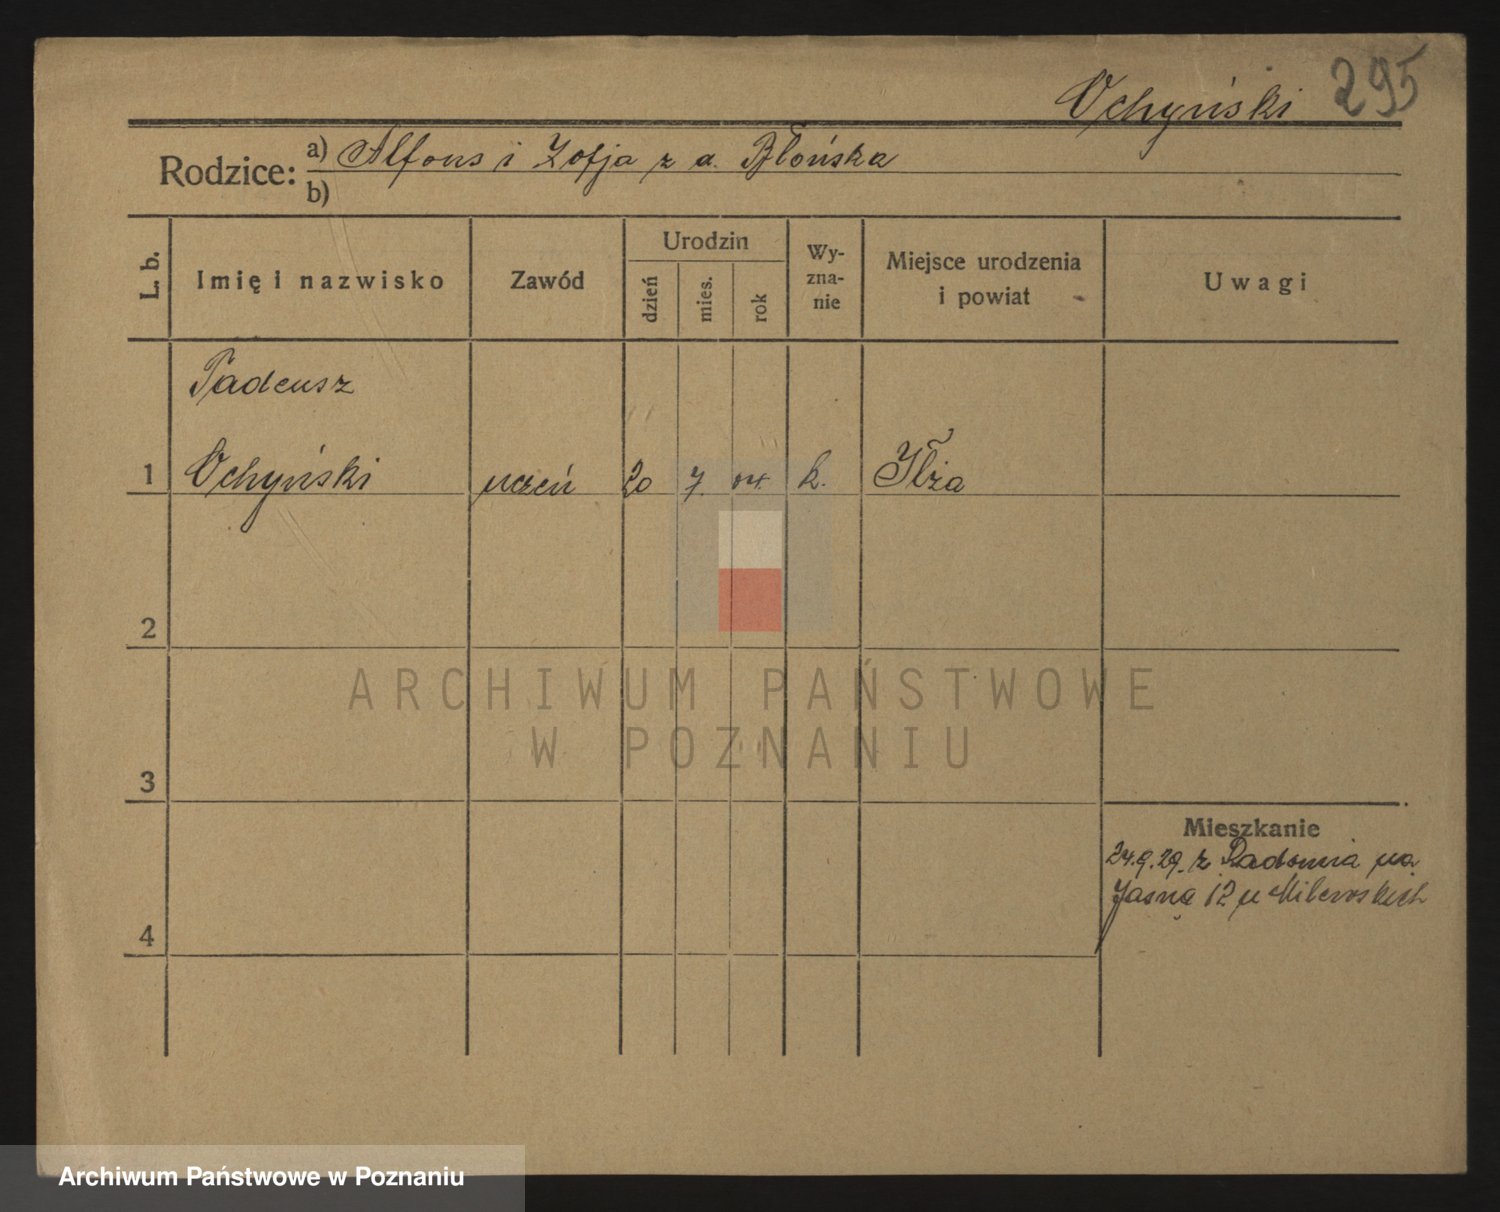 295
Ochyński
Rodzice: a) Alfons i Zofja z d. Błońska
b)
L. b.
Imię i nazwisko
Zawód
Urodzin
dzień
mies.
rok
Wy-
zna-
nie
Miejsce urodzenia
i powiat
Uwagi
Tadeusz
1 Ochyński uczeń 20 7. 04. k. Iłża
2
3
4
Mieszkanie
24.9.29. z Radomia na
Jasną 12 u
ARCHIWUM PAŃSTWOWE
W POZNANIU
Archiwum Państwowe w Poznaniu